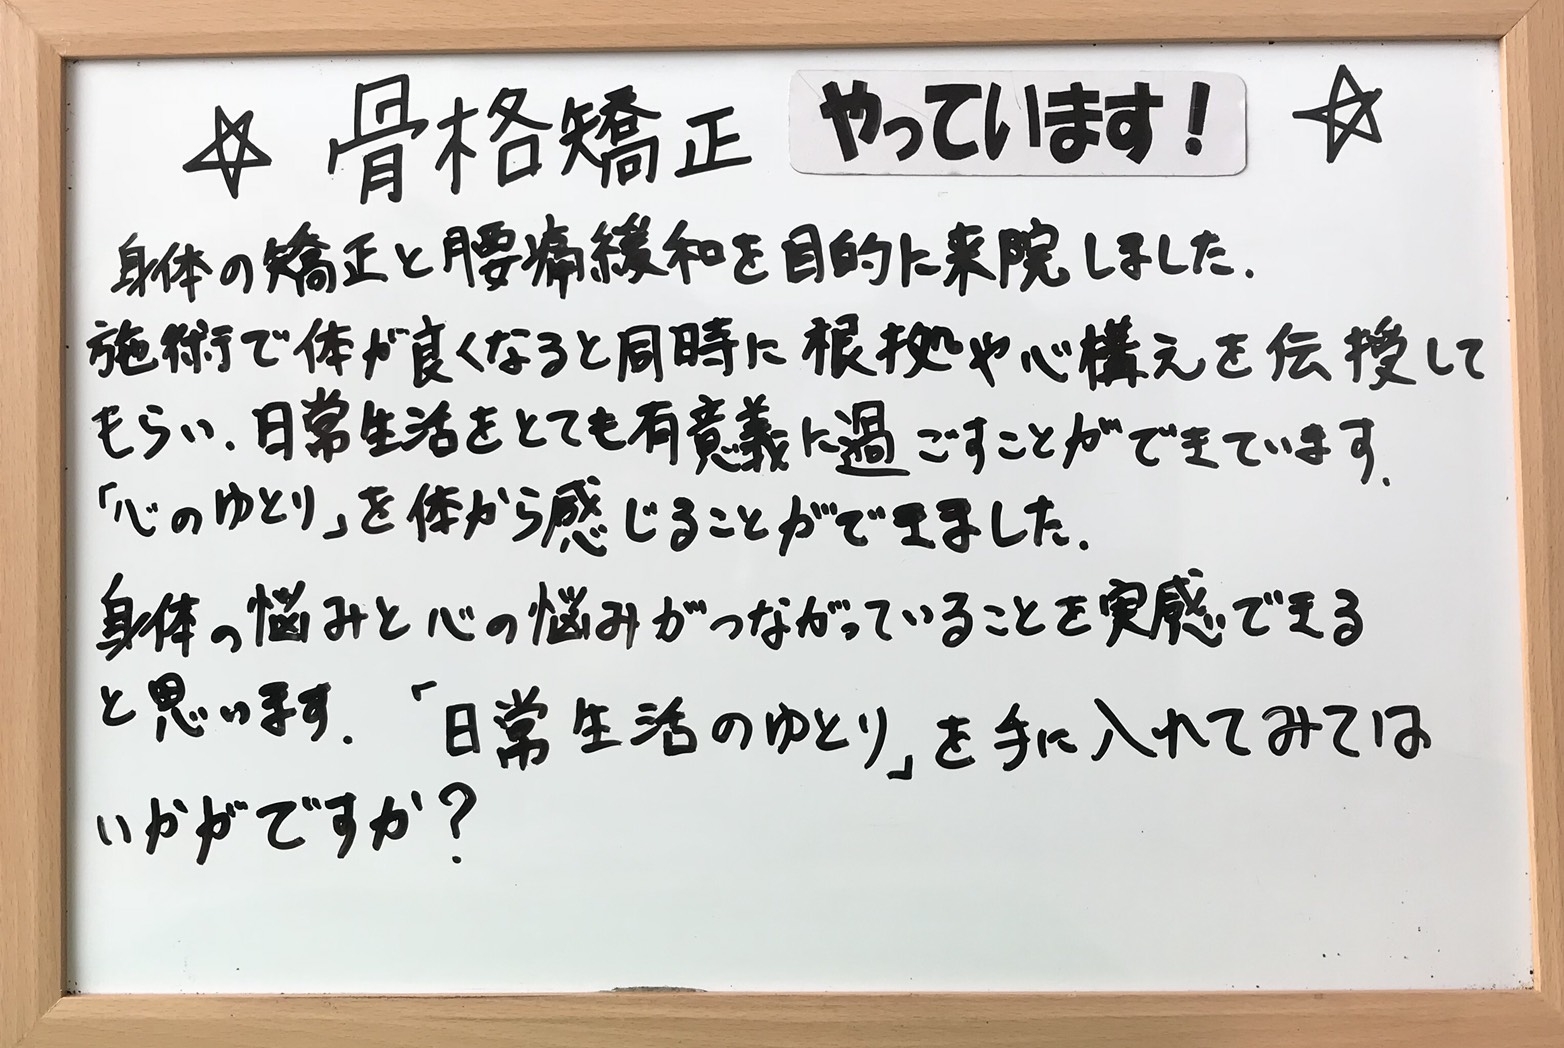 ☆ 骨格矯正 やっています! ☆
身体の矯正と腰痛緩和を目的に来院しました.
施術で体が良くなると同時に根拠や心構えを伝授して
もらい.日常生活をとても有意義に過ごすことができています.
「心のゆとり」を体から感じることができました.
身体の悩みと心の悩みがつながっていることを実感できる
と思います.「日常生活のゆとり」を手に入れてみては
いかがですか?